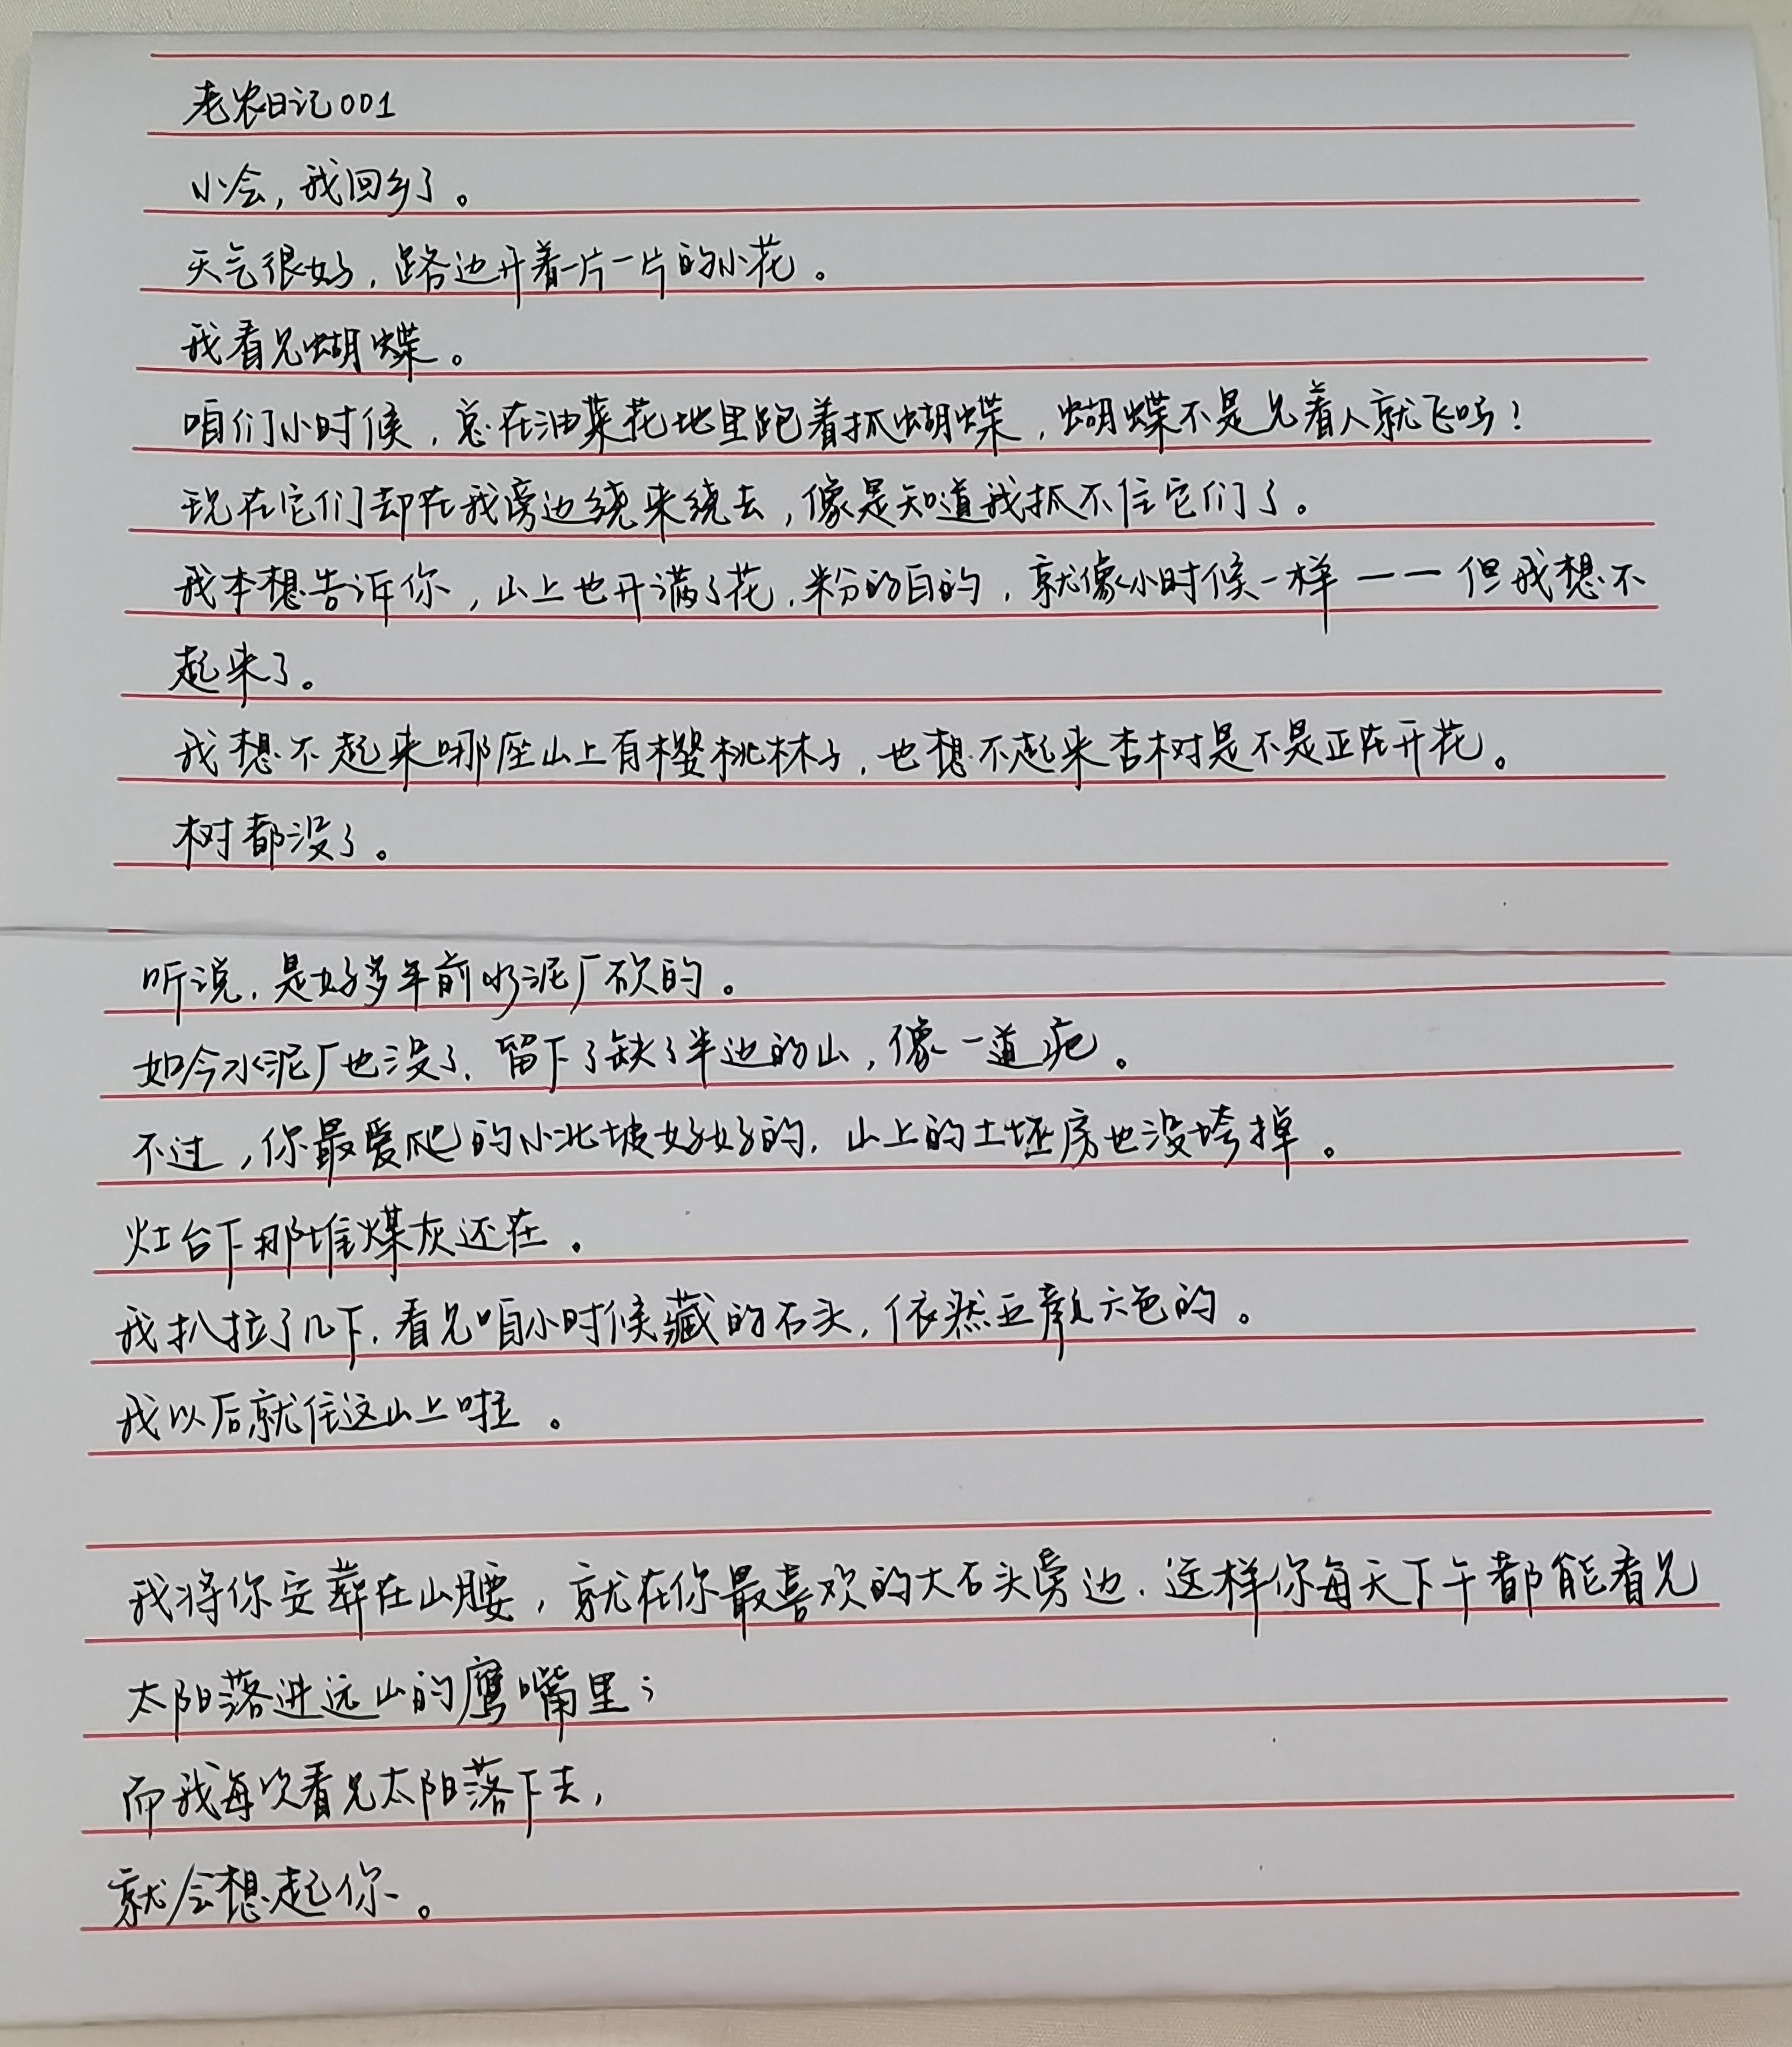 老农日记001
小会，我回乡了。
天气很好，路边开着一片一片的小花。
我看见蝴蝶。
咱们小时候，总在油菜花地里跑着抓蝴蝶，蝴蝶不是见着人就飞吗！
现在它们却在我旁边绕来绕去，像是知道我抓不住它们了。
我本想告诉你，山上也开满了花，粉的白的，就像小时候一样——但我想不
起来了。
我想不起来哪座山上有樱桃林子，也想不起来杏树是不是正在开花。
树都没了。
听说，是好多年前水泥厂砍的。
如今水泥厂也没了，留下了缺了半边的山，像一道疤。
不过，你最爱爬的小北坡好好的，山上的土坯房也没垮掉。
灶台下那堆煤灰还在。
我扒拉了几下，看见咱小时候藏的石头，依然五颜六色的。
我以后就住这山上啦。
我将你安葬在山腰，就在你最喜欢的大石头旁边，这样你每天下午都能看见
太阳落进远山的鹰嘴里；
而我每次看见太阳落下去，
就会想起你。